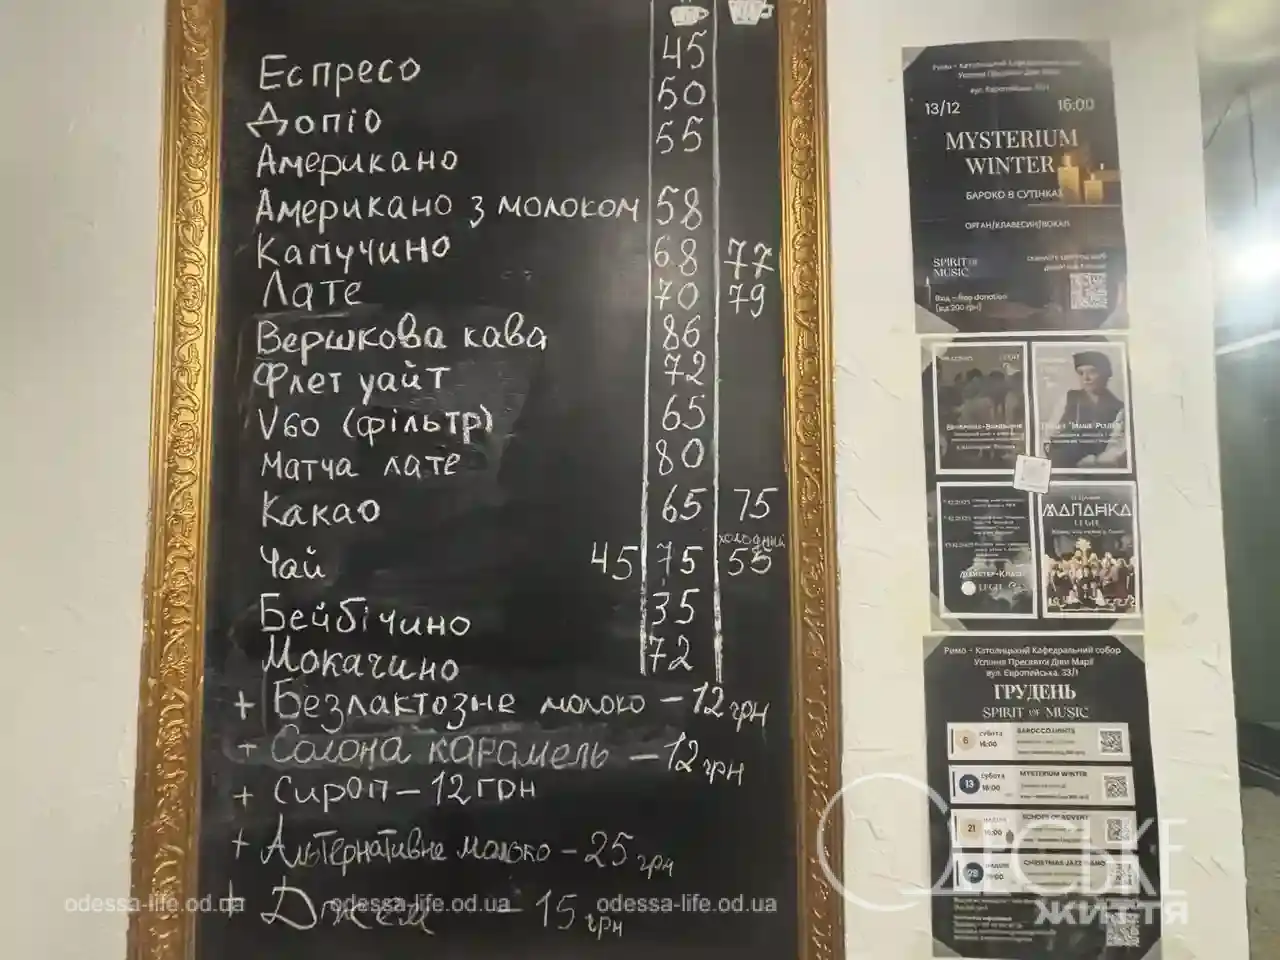 Еспресо 45
Допіо 50
Американо 55
Американо з молоком 58
Капучино 68 77
Лате 70 79
Вершкова кава 86
Флет уайт 72
V60 (фільтр) 65
Матча лате 80
Какао 65 75
холодний
Чай 45 75 55
Бейбічино 35
Мокачино 72
+ Безлактозне молоко – 12 грн
+ Солона карамель – 12 грн
+ Сироп – 12 грн
+ Альтернативне молоко – 25 грн
+ Джем – 15 грн
Римо - Католицький Кафедральний
Успіння Пресвятої Діви Марії
13/12 16:00
MYSTERIUM
WINTER
БАРОКО В СУТІНКАХ
ОРГАН/КЛАВЕСИН/ВОКАЛ
SPIRIT OF
MUSIC
Вхід - free donation
(від 200 грн)
МАЛАНКА
Римо - Католицький Кафедральний собор
Успіння Пресвятої Діви Марії
вул. Європейська, 33/1
ГРУДЕНЬ
SPIRIT OF MUSIC
6 субота 16:00 BAROCCO LIGHTS
13 субота 16:00 MYSTERIUM WINTER
21 неділя ECHOES OF ADVENT
28 неділя CHRISTMAS JAZZ PIANO
ОДЕСЬКЕ
ЖИТТЯ
odessa-life.od.ua odessa-life.od.ua odessa-life.od.ua